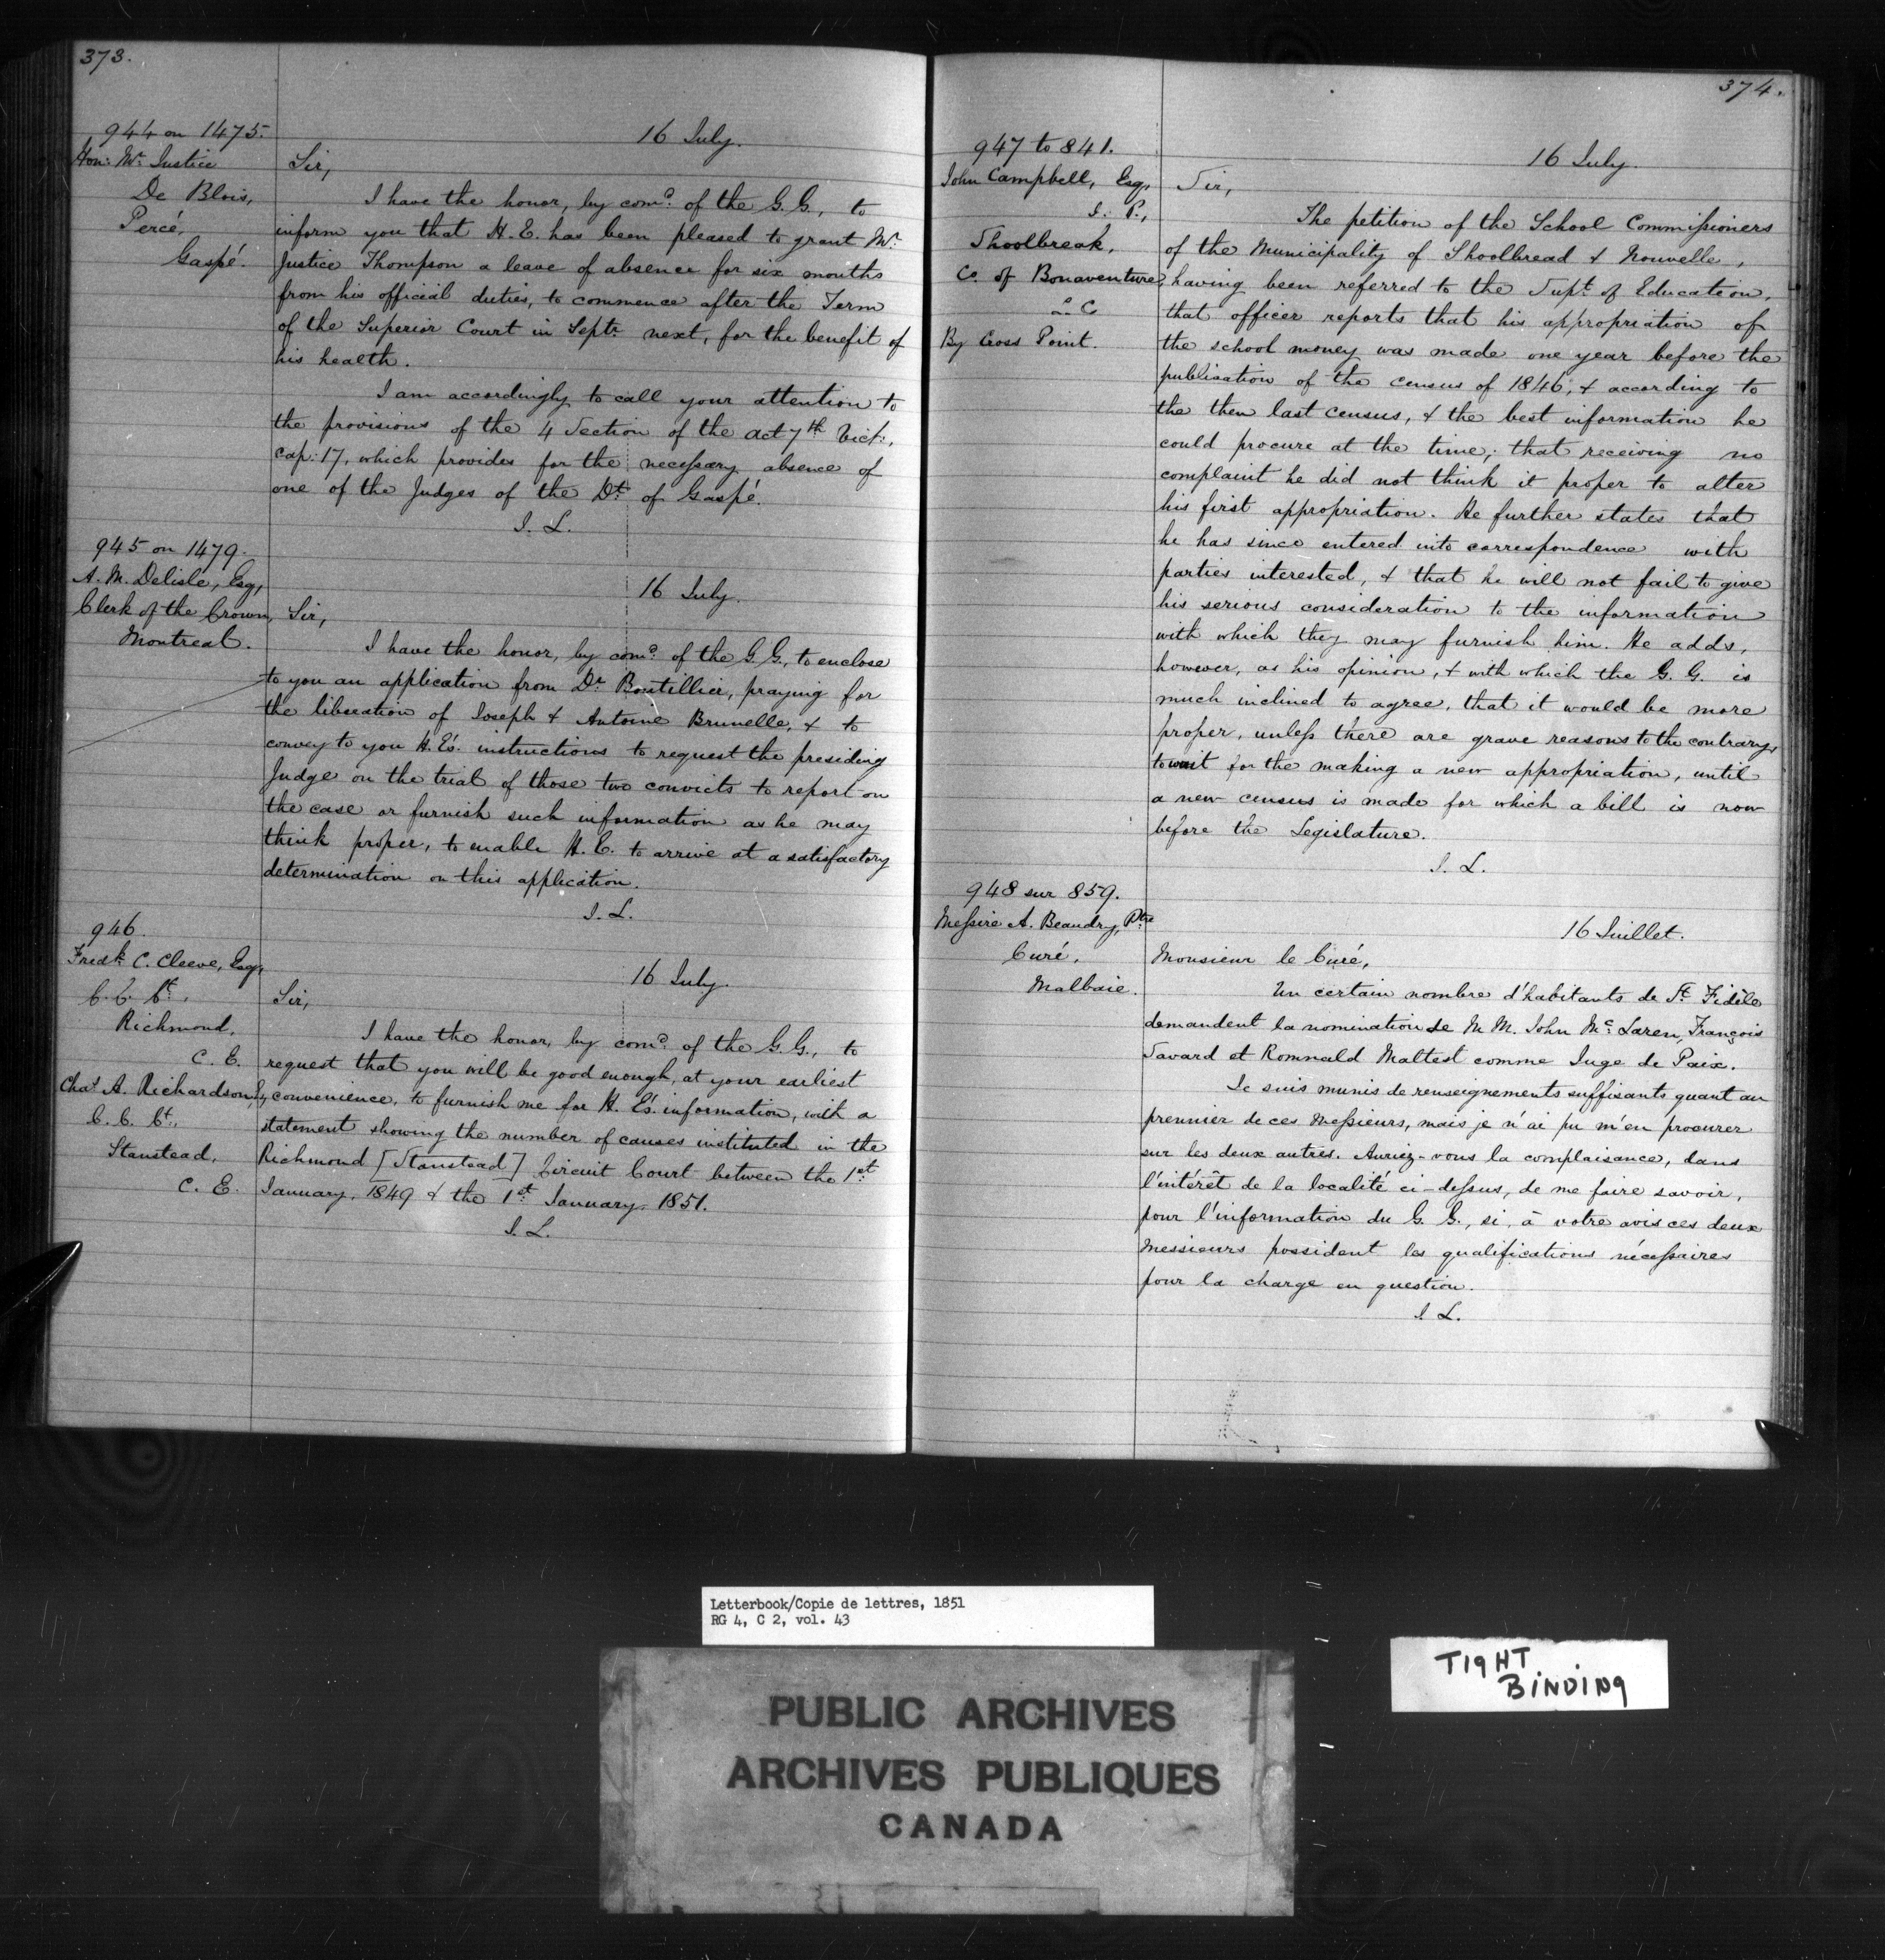 373.
944 on 1475.
Hon: Mr. Justice
De Blois,
Percé,
Gaspé.
16 July.
Sir,
I have the honor, by comd. of the G. G., to
inform you that H. E. has been pleased to grant Mr.
Justice Thompson a leave of absence for six months
from his official duties, to commence after the Term
of the Superior Court in Septr. next, for the benefit of
his health.
I am accordingly to call your attention to
the provisions of the 4 Section of the act 7th Vict:,
cap: 17, which provides for the necessary absence of
one of the Judges of the Dt. of Gaspé.
J. L.
945 on 1479.
A. M. Delisle, Esq,
Clerk of the Crown,
Montreal.
16 July.
Sir,
I have the honor, by comd. of the G. G., to enclose
to you an application from Dr. Boutillier, praying for
the liberation of Joseph & Antoine Brunelle, & to
convey to you H. E's. instructions to request the presiding
Judge on the trial of those two convicts to report on
the case or furnish such information as he may
think proper, to enable H. E. to arrive at a satisfactory
determination on this application.
J. L.
946.
Fredk. C. Cleeve, Esq,
C. C. Ct.,
Richmond,
C. E.
Chas. A. Richardson, Esq,
C. C. Ct.,
Stanstead,
C. E.
16 July.
Sir,
I have the honor, by comd. of the G. G., to
request that you will be good enough, at your earliest
convenience, to furnish me for H. E's. information, with a
statement showing the number of causes instituted in the
Richmond [Stanstead] Circuit Court between the 1st
January, 1849 & the 1st January, 1851.
J. L.
374.
947 to 841.
John Campbell, Esq,
J. P.,
Shoolbreak,
Co. of Bonaventure,
By Cross Point.
16 July.
Sir,
The petition of the School Commissioners
of the Municipality of Shoolbread & Nouvelle,
having been referred to the Supt. of Education,
that officer reports that his appropriation of
the school money was made one year before the
publication of the census of 1846, & according to
the then last census, & the best information he
could procure at the time; that receiving no
complaint he did not think it proper to alter
his first appropriation. He further states that
he has since entered into correspondence with
parties interested, & that he will not fail to give
his serious consideration to the information
with which they may furnish him. He adds,
however, as his opinion, & with which the G. G. is
much inclined to agree, that it would be more
proper, unless there are grave reasons to the contrary,
to wait for the making a new appropriation, until
a new census is made for which a bill is now
before the Legislature.
J. L.
948 sur 859.
Messire A. Beaudry, Ptre
Curé,
Malbaie.
16 Juillet.
Monsieur le Curé,
Un certain nombre d'habitants de St. Fidèle
demandent la nomination de M M. John Mc. Laren, François
Savard et Romnald Maltest comme Juge de Paix.
Je suis munis de renseignements suffisants quant au
premier de ces Messieurs, mais je n'ai pu m'en procurer
sur les deux autres. Auriez-vous la complaisance, dans
l'intérêt de la localité ci-dessus, de me faire savoir,
pour l'information du G. G., si, à votre avis ces deux
Messieurs possident les qualifications nécessaires
pour la charge en question.
J. L.
Letterbook/Copie de lettres, 1851
RG 4, C 2, vol. 43
TIGHT
BINDING
PUBLIC ARCHIVES
ARCHIVES PUBLIQUES
CANADA